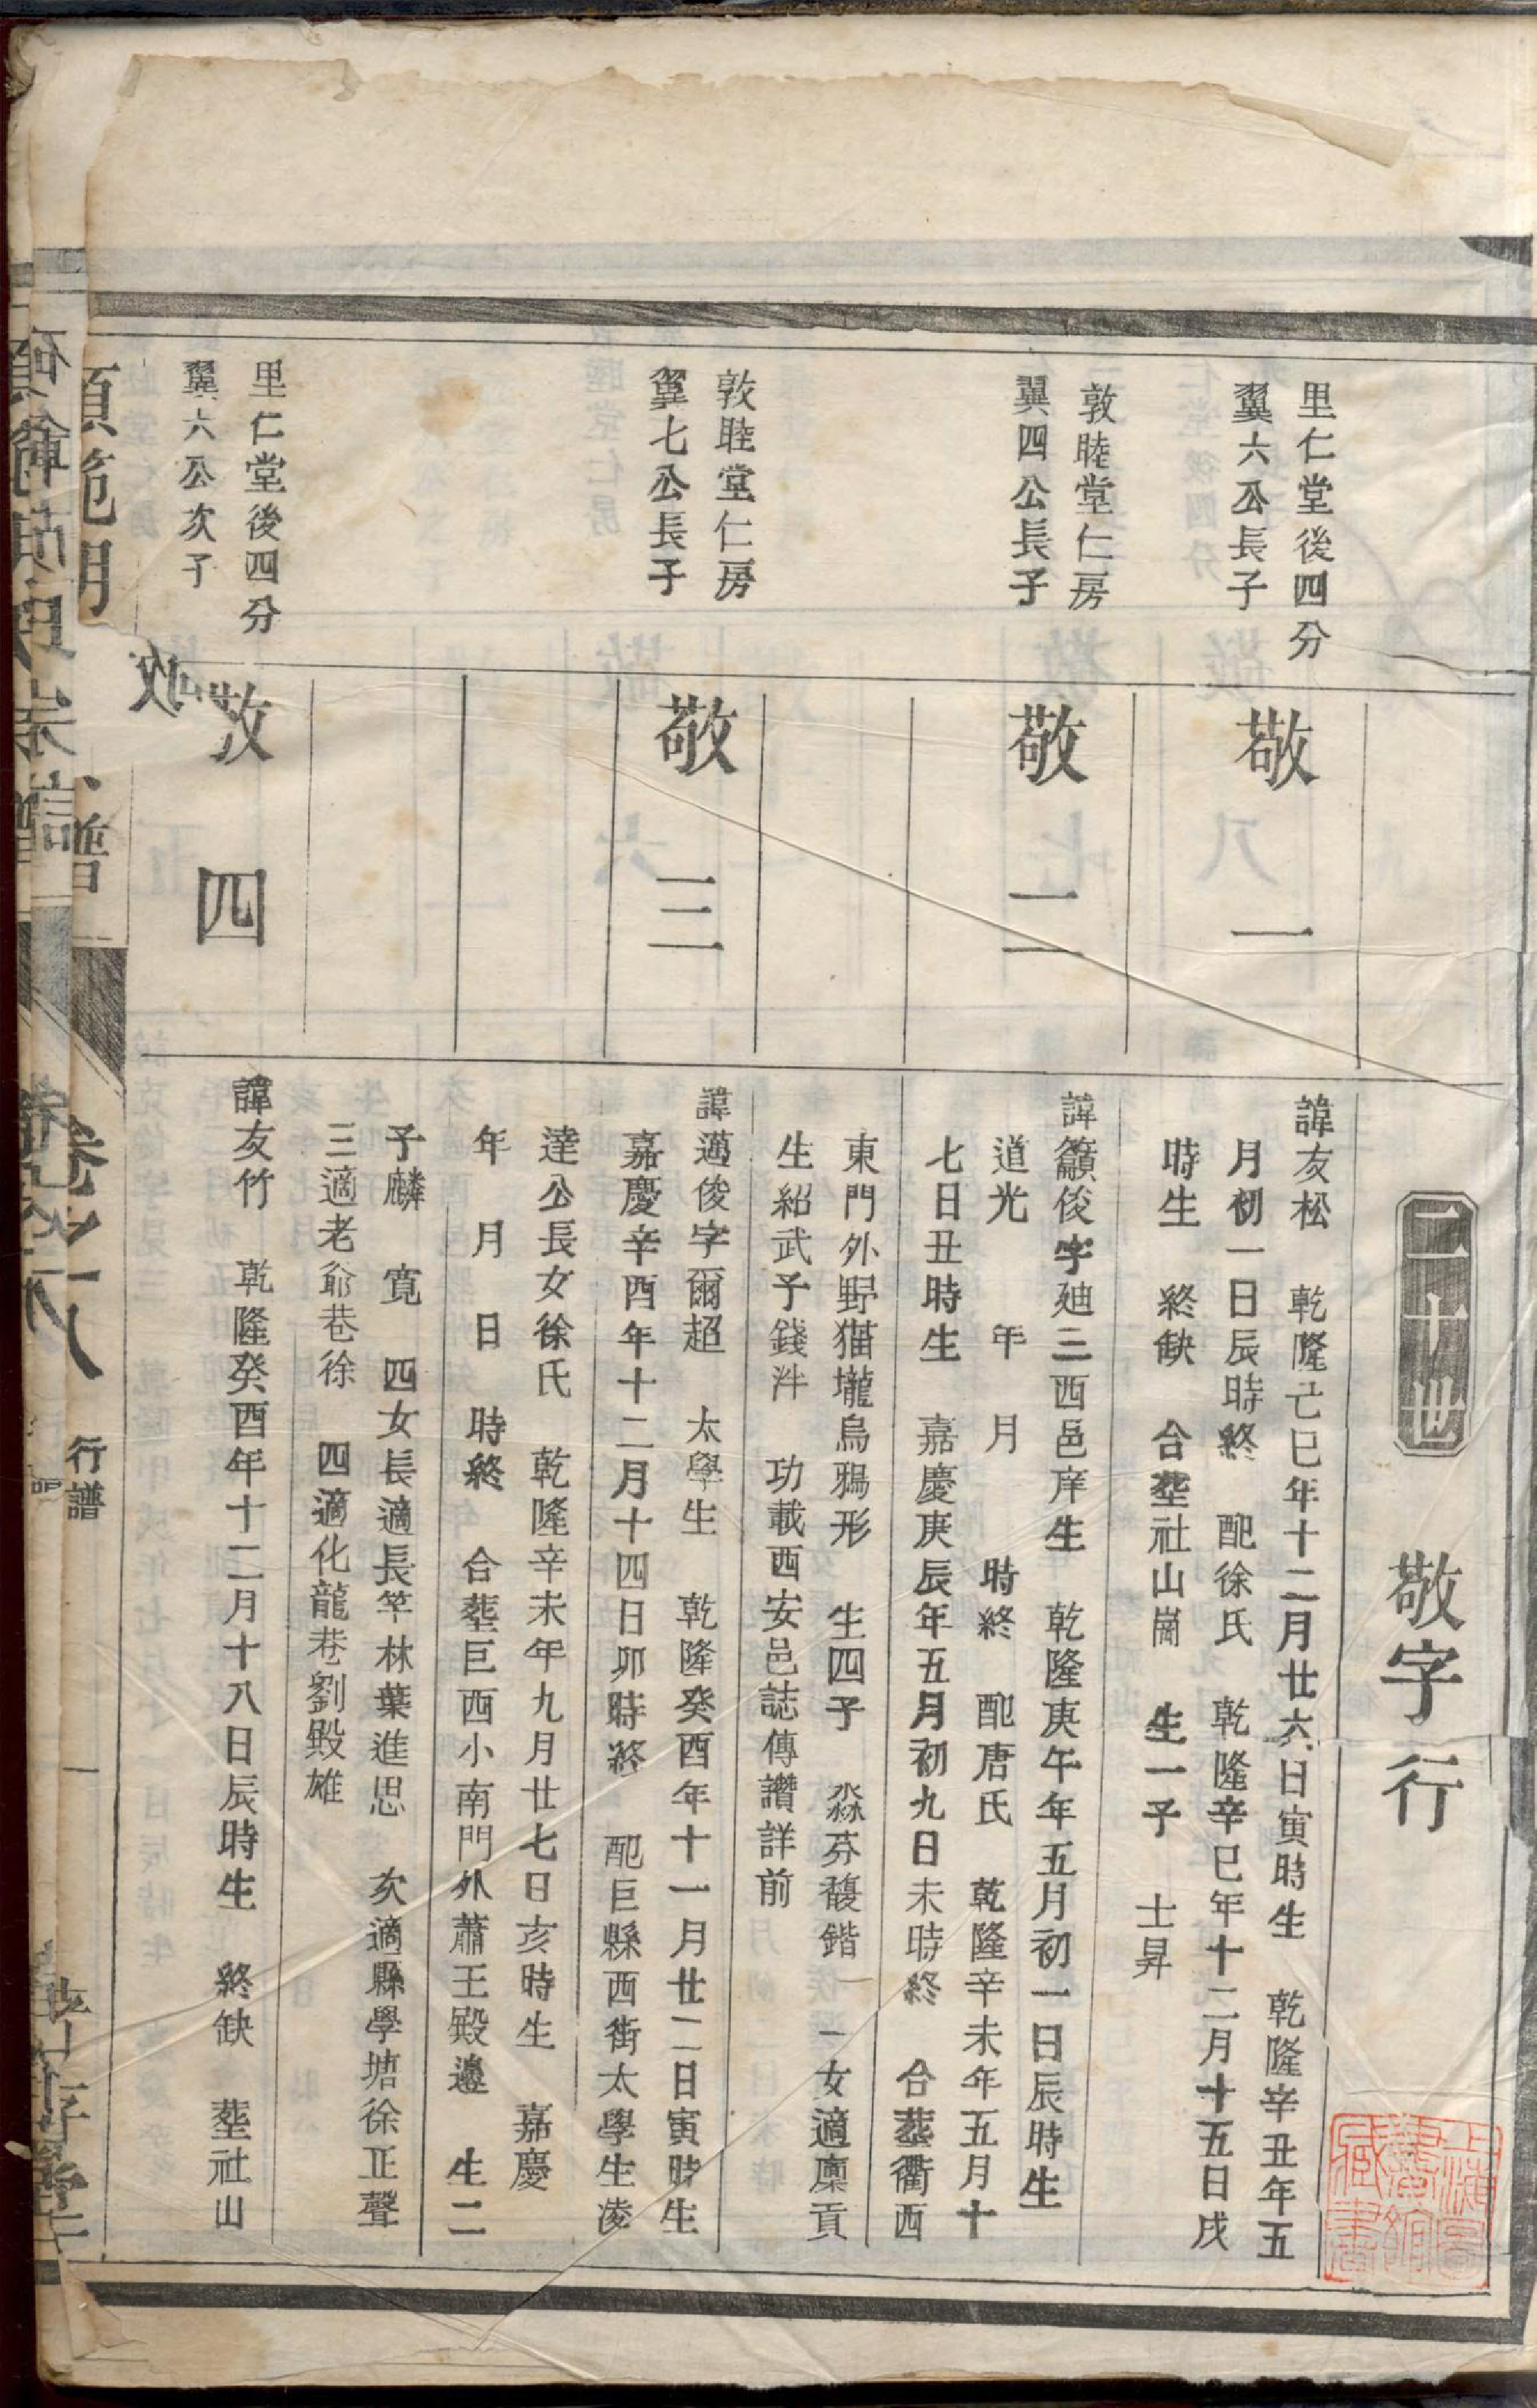 二十世　敬字行
里仁堂後四分
翼六公長子
敬一
諱友松　乾隆己巳年十二月廿六日寅時生　乾隆辛丑年五
月初一日辰時終　配徐氏　乾隆辛巳年十二月十五日戌
時生　終缺　合塟社山崗　生一子　士昇
敦睦堂仁房
翼四公長子
敬二
諱籲俊字廸三西邑庠生　乾隆庚午年五月初一日辰時生
道光　年　月　時終　配唐氏　乾隆辛未年五月十
七日丑時生　嘉慶庚辰年五月初九日未時終　合塟衢西
東門外野猫壠烏鴉形　生四子　淼芬馥鍇　一女適廪貢
生紹武予錢泮　功載西安邑誌傳讚詳前
敦睦堂仁房
翼七公長子
敬三
諱邁俊字爾超　太學生　乾隆癸酉年十一月廿二日寅時生
嘉慶辛酉年十二月十四日卯時終　配巨縣西街太學生凌
達公長女徐氏　乾隆辛未年九月廿七日亥時生　嘉慶
年　月　日　時終　合塟巨西小南門外蕭王殿邉　生二
子麟　寛　四女長適長竿林葉進思　次適縣學塘徐正聲
三適老爺巷徐　四適化龍巷劉殿雄
里仁堂後四分
翼六公次子
敬四
諱友竹　乾隆癸酉年十二月十八日辰時生　終缺　塟社山
卷之八　行譜　一